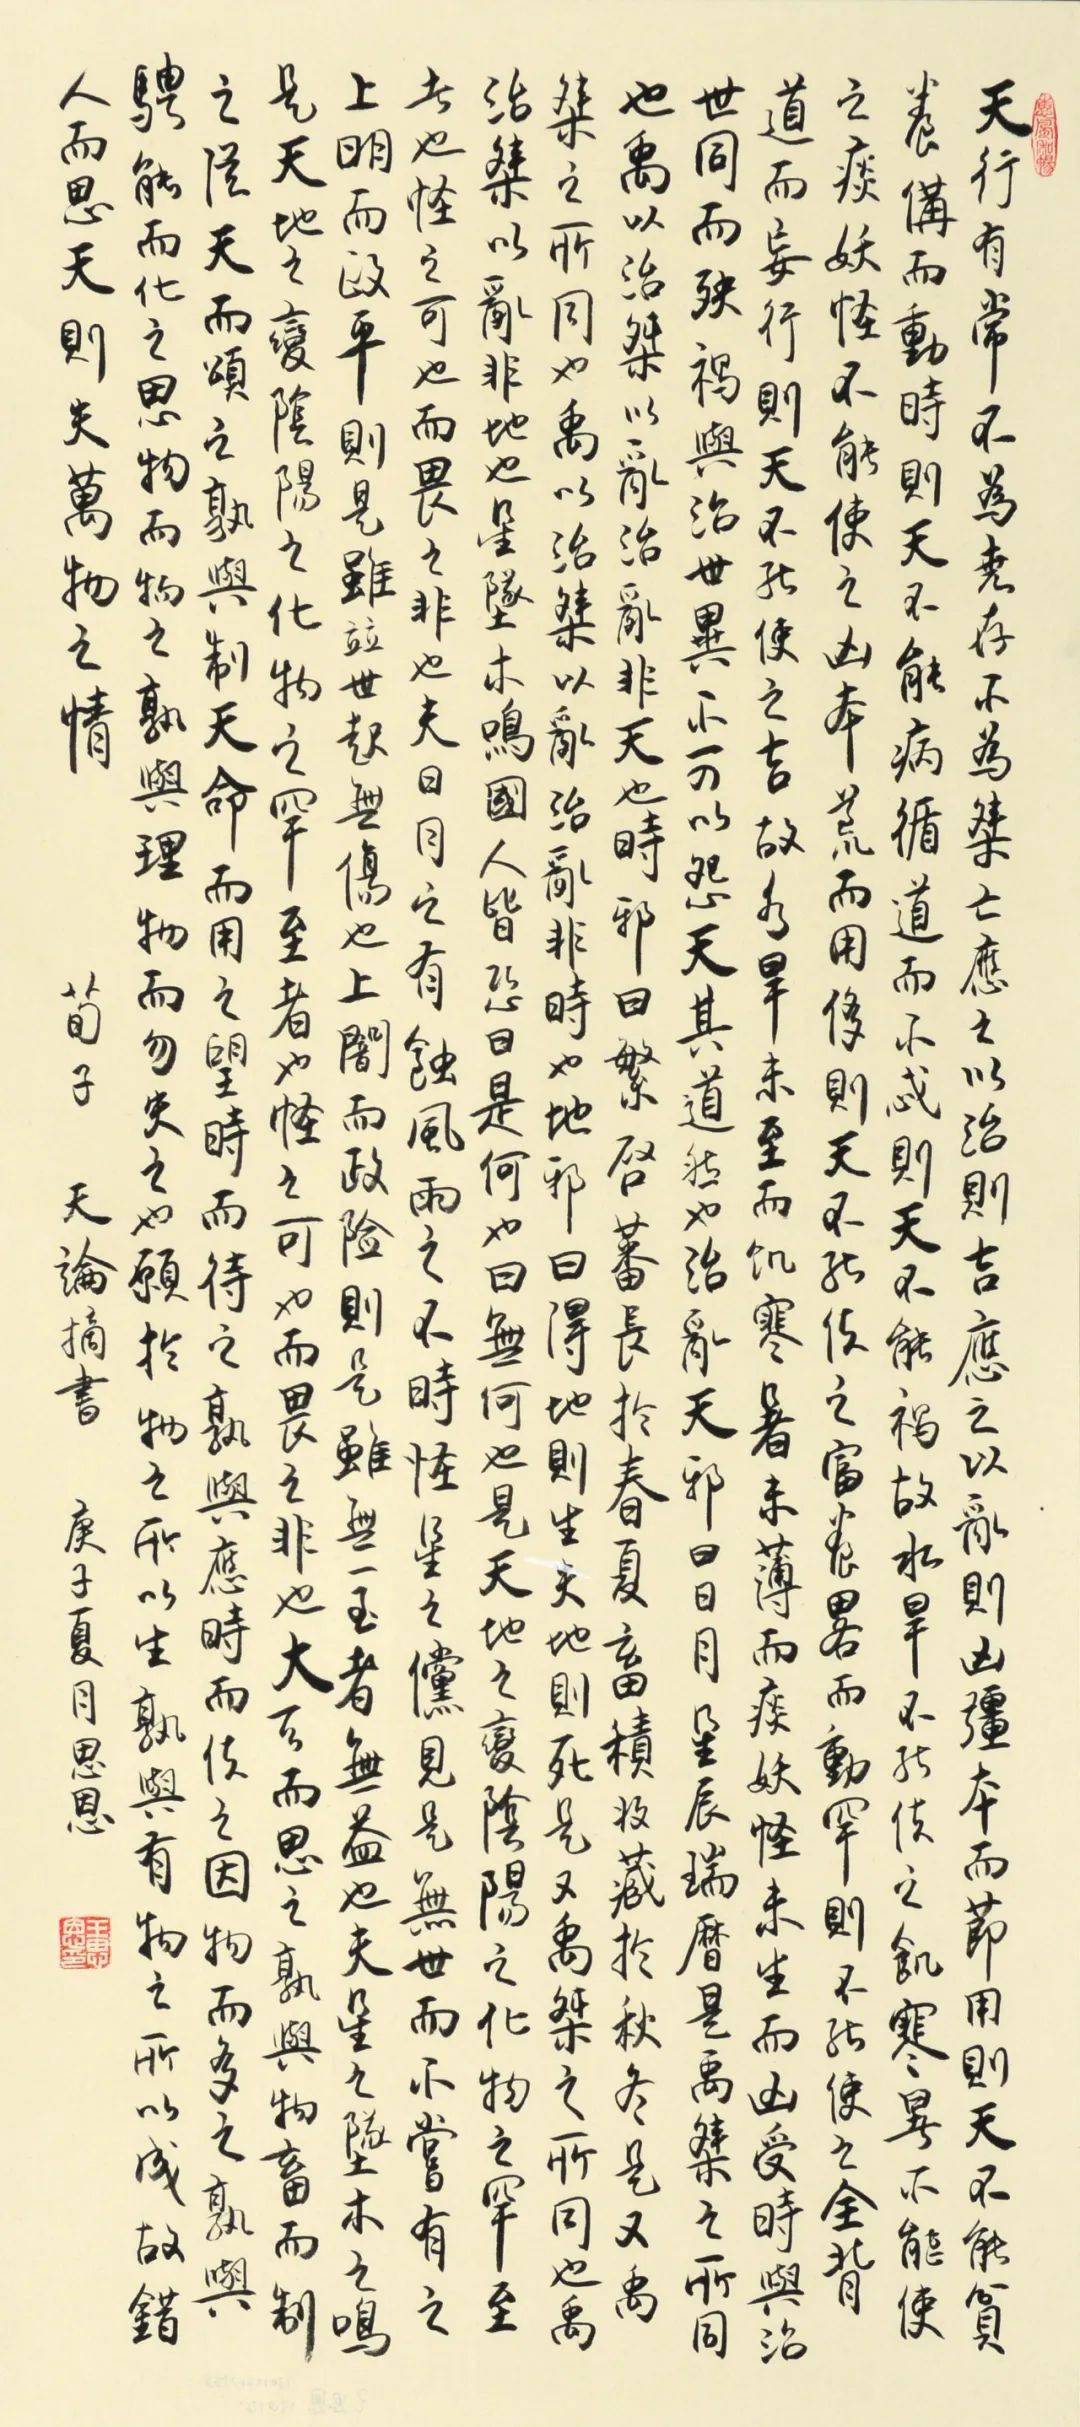 天行有常不為堯存不為桀亡應之以治則吉應之以亂則凶彊本而節用則天不能貧
養備而動時則天不能病循道而不忒則天不能禍故水旱不能使之飢寒暑不能使
之疾妖怪不能使之凶本荒而用侈則天不能使之富養畧而動罕則不能使之全背
道而妄行則天不能使之吉故水旱未至而饥寒暑未薄而疾妖怪未生而凶受時與治
世同而殃禍與治世異不可以怨天其道然也治亂天邪曰日月星辰瑞曆是禹桀之所同
也禹以治桀以亂治亂非天也時邪曰繁啓蕃長於春夏畜積收藏於秋冬是又禹
桀之所同也禹以治桀以亂治亂非時也地邪曰得地則生失地則死是又禹桀之所同也禹
治桀以亂非地也星墜木鳴國人皆恐曰是何也曰無何也是天地之變陰陽之化物之罕至
者也怪之可也而畏之非也夫日月之有蝕風雨之不時怪星之儻見是無世而不嘗有之
上明而政平則是雖竝世起無傷也上闇而政险則是雖無一至者無益也夫星之墜木之鳴
是天地之變陰陽之化物之罕至者也怪之可也而畏之非也大天而思之孰與物畜而制
之從天而頌之孰與制天命而用之望時而待之孰與應時而使之因物而多之孰與
騁能而化之思物而物之孰與理物而勿失之也願於物之所以生孰與有物之所以成故錯
人而思天則失萬物之情 荀子 天論摘書 庚子夏月思恩